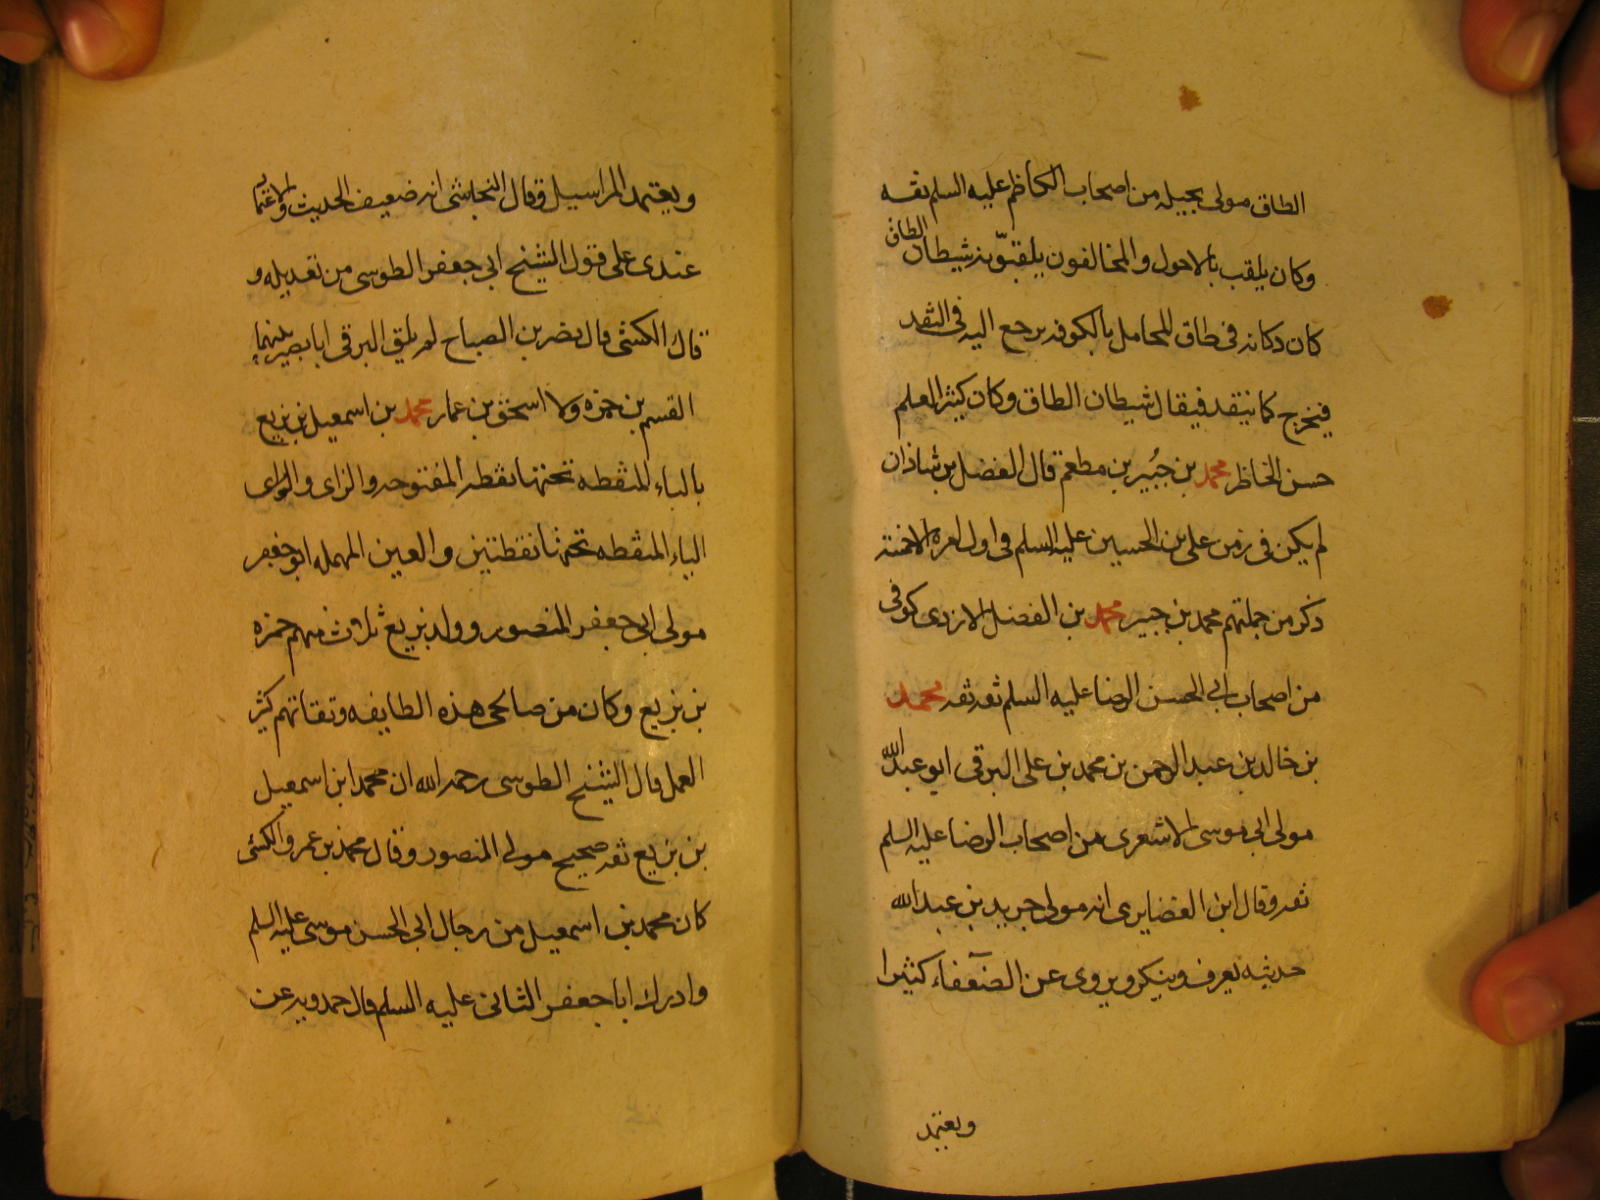 الطاق مولى بجيله من اصحاب الكاظم عليه السلم ثقه
وكان يلقب بالاحول والمخالفون يلقبونه شيطان الطاق
كان دكانه فى طاق المحامل بالكوفه يرجع اليه فى النقد
فيخرج كما ينتقد فيقال شيطان الطاق وكان كثير العلم
حسن الخاطر محمد بن جبير بن مطعم قال الفضل بن شاذان
لم يكن فى زمن على بن الحسين عليه السلم فى اول امره الا خمسه
ذكر من جملتهم محمد بن جبير محمد بن الفضل الازدى كوفى
من اصحاب ابى الحسن الرضا عليه السلم ثقه ثقه محمد
بن خالد بن عبد الرحمن بن محمد بن على البرقى ابو عبد الله
مولى ابى موسى الاشعرى من اصحاب الرضا عليه السلم
ثقه وقال ابن الغضايرى انه مولى جرير بن عبد الله
حديثه يعرف وينكر ويروى عن الضعفاء كثيرا
ويعتمد
ويعتمد المراسيل وقال النجاشى انه ضعيف الحديث والاعتماد
عندى على قول الشيخ ابى جعفر الطوسى من تعديله و
قال الكشى قال نصر بن الصباح لم يلق البرقى ابا بصير بينهما
القسم بن حمزه ولا اسحق بن عمار محمد بن اسمعيل بن بزيع
بالباء المنقطه تحتها نقطه المفتوحه والزاى و
الياء المنقطه تحتها نقطتين والعين المهمله ابو جعفر
مولى ابى جعفر المنصور وولد بزيع ثلاث منهم حمزه
بن بزيع وكان من صالحى هذه الطايفه وثقاتهم كثير
العمل قال الشيخ الطوسى رحمه الله ان محمد ابن اسمعيل
بن بزيع ثقه صحيح مولى المنصور وقال محمد بن عمرو الكشى
كان محمد بن اسمعيل من رجال ابى الحسن موسى عليه السلم
وادرك ابا جعفر الثانى عليه السلم قال حمدويه عن